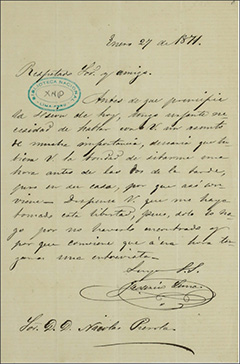 Enero 27 de 1871.
BIBLIOTECA NACIONAL
Respetado Sor. y amigo.
Antes de que principie
la sesion de hoy, tengo urgente ne-
cesidad de hablar con V. un asunto
de mucha importancia, desearia que tu-
biera V. la bondad de sitarme una
hora antes de las dos de la tarde,
pero en su casa, por que asi con-
viene. Dispense V. que me haya
tomado esta libertad, pues, solo lo ha-
go por no haverlo encontrado y
por que conviene que a esa hora ten-
gamos una entrevista.
S. S.
Sor. D. D. Nicolas Pierola.